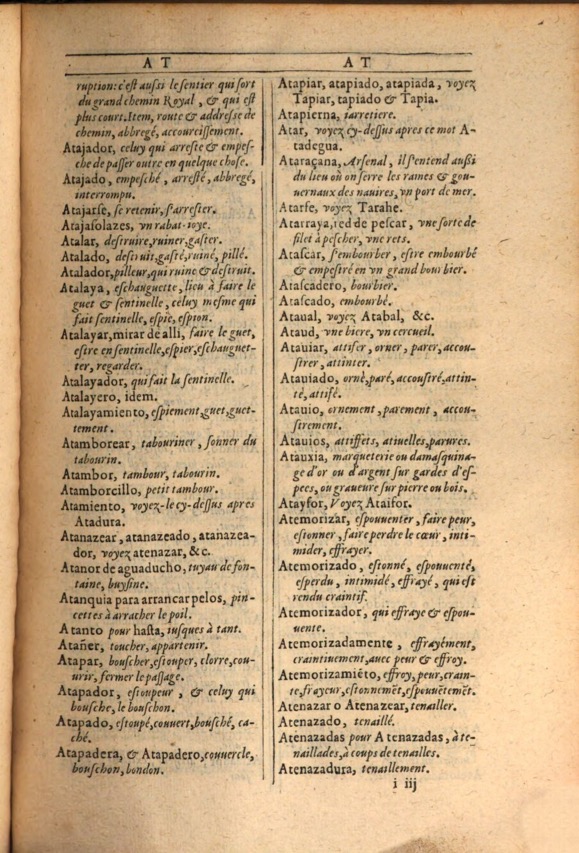 AT
AT
ruption: c'eſt auſſi le ſentier qui ſort
du grand chemin Royal, & qui eſt
plus court. Item, route & addreſſe de
chemin, abbregé, accourciſſement.
Atajador, celuy qui arreſte & empeſ-
che de paſſer outre en quelque choſe.
Atajado, empeſché, arreſté, abbregé,
interrompu.
Atajarſe, ſe retenir, ſ'arreſter.
Atajaſolazes, vn rabat-ioye.
Atalar, deſtruire, ruiner, gaſter.
Atalado, deſtruit, gaſté, ruiné, pillé.
Atalador, pilleur, qui ruine & deſtruit.
Atalaya, eſchauguette, lieu à faire le
guet & ſentinelle, celuy meſme qui
fait ſentinelle, eſpie, eſpion.
Atalayar, mirar de alli, faire le guet,
eſtre en ſentinelle, eſpier, eſchauguet-
ter, regarder.
Atalayador, qui fait la ſentinelle.
Atalayero, idem.
Atalayamiento, eſpiement, guet, guet-
tement.
Atamborear, tabouriner, ſonner du
tabourin.
Atambor, tambour, tabourin.
Atamborcillo, petit tambour.
Atamiento, voyez-le cy-deſſus apres
Atadura.
Atanazear, atanazeado, atanazea-
dor, voyez atenazar, &c.
Atanor de aguaducho, tuyau de fon-
taine, buyſine.
Atanquia para arrancar pelos, pin-
cettes à arracher le poil.
Atanto pour haſta, iuſques à tant.
Atañer, toucher, appartenir.
Atapar, bouſcher, eſtouper, clorre, cou-
urir, fermer le paſſage.
Atapador, eſtoupeur, & celuy qui
bouſche, le bouſchon.
Atapado, eſtoupé, couuert, bouſché, ca-
ché.
Atapadera, & Atapadero, couuercle,
bouſchon, bondon.
Atapiar, atapiado, atapiada, voyez
Tapiar, tapiado & Tapia.
Atapierna, iarretiere.
Atar, voyez cy-deſſus apres ce mot A-
tadegua.
Ataraçana, Arſenal, il ſ'entend auſſi
du lieu où on ſerre les rames & gou-
uernaux des nauires, vn port de mer.
Atarfe, voyez Tarahe.
Atarraya, red de peſcar, vne ſorte de
filet à peſcher, vne rets.
Ataſcar, ſ'embourber, eſtre embourbé
& empeſtré en vn grand bourbier.
Ataſcadero, bourbier.
Ataſcado, embourbé.
Ataual, voyez Atabal, &c.
Ataud, vne biere, vn cercueil.
Atauiar, attifer, orner, parer, accou-
ſtrer, attinter.
Atauiado, orné, paré, accouſtré, attin-
té, attifé.
Atauio, ornement, parement, accou-
ſtrement.
Atauios, attiffets, atiuelles, parures.
Atauxia, marqueterie ou damaſquina-
ge d'or ou d'argent ſur gardes d'eſ-
pees, ou graueure ſur pierre ou bois.
Atayfor, Voyez Ataifor.
Atemorizar, eſpouuenter, faire peur,
eſtonner, faire perdre le cœur, inti-
mider, effrayer.
Atemorizado, eſtonné, eſpouuenté,
eſperdu, intimidé, effrayé, qui eſt
rendu craintif.
Atemorizador, qui effraye & eſpou-
uente.
Atemorizadamente, effrayément,
craintiuement, auec peur & effroy.
Atemorizamiéto, effroy, peur, crain-
te, frayeur, eſtonnemẽt, eſpouuẽtemẽt.
Atenazar o Atenazear, tenailler.
Atenazado, tenaillé.
Atenazadas pour A tenazadas, à te-
naillades, à coups de tenailles.
Atenazadura, tenaillement.
i iij